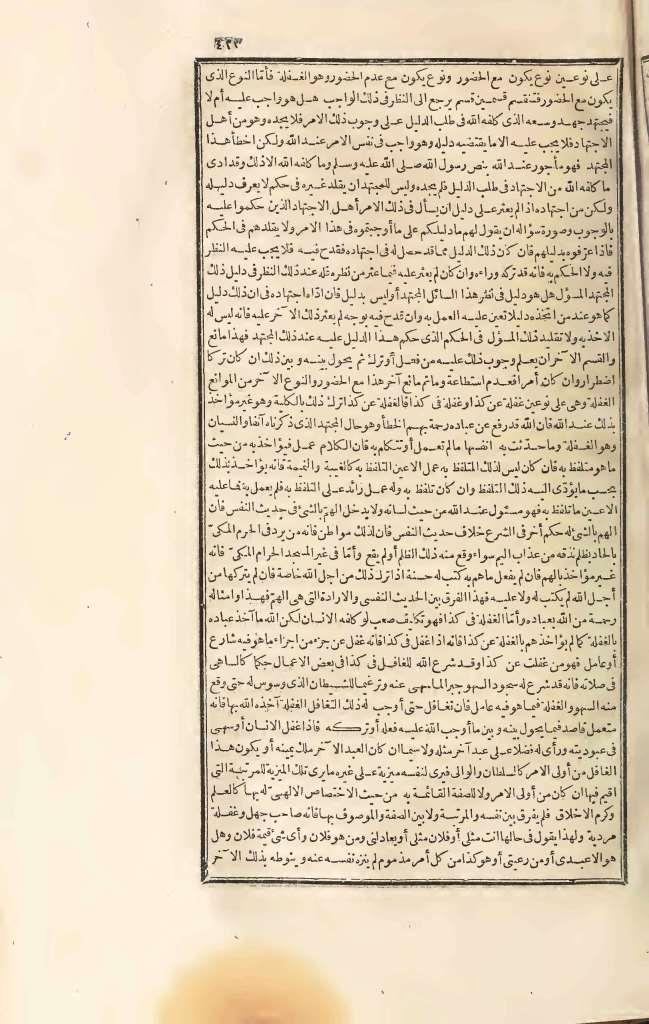 ٤٢٣
على نوعين نوع يكون مع الحضور ونوع يكون مع عدم الحضور وهو الغفلة فأما النوع الذى
يكون مع الحضور فتنقسم قسمين قسم يرجع الى النظر فى ذلك الواجب هل هو واجب عليه أم لا
فيجتهد جهد وسعه الذى كلفه الله فى طلب الدليل على وجوب ذلك الامر فلا يجده وهو من أهل
الاجتهاد فلا يجب عليه الا ما يقتضيه دليله وهو واجب فى نفس الامر عند الله ولكن اخطأ هذا
المجتهد فهو مأجور عند الله بنص رسول الله صلى الله عليه وسلم وما كلفه الله الا ذلك وقد ادى
ما كلفه الله من الاجتهاد فى طلب الدليل فلم يجده وليس للمجتهد ان يقلد غيره فى حكم لا يعرف دليله
ولكن من اجتهاده اذ الم يعثر على دليل ان يسأل فى ذلك الامر أهل الاجتهاد الذين حكموا عليه
بالوجوب وصورة سؤاله ان يقول لهم ما دليلكم على ما أوجبتموه فى هذا الامر ولا يقلدهم فى الحكم
فاذا عرفوه بدليلهم فان كان ذلك الدليل مما قد حصل له فى اجتهاده فقدح فيه فلا يجب عليه النظر
فيه ولا الحكم به فانه قد تركه وراءه وان كان لم يعثر عليه فيما عثر من نظره فله عند ذلك النظر فى دليل ذلك
المجتهد المسؤل هل هو دليل فى نظر هذا السائل المجتهد أوليس بدليل فان اداه اجتهاده فى ان ذلك دليل
كما هو عند من اتخذه دليلا تعين عليه العمل به وان قدح فيه بوجه لم يعثر ذلك الآخر عليه فانه ليس له
الاخذ به ولا تقليد ذلك المسؤل فى الحكم الذى حكم هذا الدليل عليه عند ذلك المجتهد فهذا مانع
والقسم الآخر ان يعلم وجوب ذلك عليه من فعل أو ترك ثم يحول بينه وبين ذلك ان كان تركا
اضطرار وان كان أمرا فعدم استطاعة وما ثم مانع آخر هذا مع الحضور والنوع الآخر من الموانع
الغفلة وهى على نوعين غفلة عن كذا وغفلة فى كذا فالغفلة عن كذا ترك ذلك بالكلية وهو غير مؤاخذ
بذلك عند الله فان الله قد رفع عن عباده رحمة بهم الخطأ وهو حال المجتهد الذى ذكرناه آنفا والنسيان
وهو الغفلة وما حدثت به انفسها ما لم تعمل أو تتكلم به فان الكلام عمل فيؤاخذ به من حيث
ما هو متلفظ به فان كان ليس لذلك المتلفظ به عمل الا عين التلفظ به كالغيبة والنميمة فانه يؤاخذ بذلك
بحسب ما يؤدى اليه ذلك التلفظ وان كان تلفظ به وله عمل زائد على التلفظ به فلم يعمل به فما عليه
الا عين ما تلفظ به فهو مسئول عند الله من حيث لسانه ولا يدخل الهم بالشئ فى حديث النفس فان
الهم بالشئ له حكم آخر فى الشرع خلاف حديث النفس فان لذلك مواطن فانه من يرد فى الحرم المكى
بالحاد بظلم نذقه من عذاب اليم سواء وقع منه ذلك الظلم أو لم يقع وأما فى غير المسجد الحرام المكى فانه
غير مؤاخذ بالهم فان لم يفعل ما هم به كتب له حسنة اذا ترك ذلك من اجل الله خاصة فان لم يتركها من
أجل الله لم يكتب له ولا عليه فهذا الفرق بين الحديث النفسى والارادة التى هى الهم فهذا وامثاله
رحمة من الله بعباده وأما الغفلة فى كذا فهو تكليف صعب لو كلفه الانسان لكن الله ما آخذ عباده
بالغفلة كما لم يؤاخذهم بالغفلة عن كذا فانه اذا غفل فى كذا فانه غفل عن جزء من اجزاء ما هو فيه شارع
أو عامل فهو من غفلت عن كذا وقد شرع الله للغافل فى كذا فى بعض الاعمال حكما كالساهى
فى صلاته فانه قد شرع له سجود السهو جبرا لما سهى عنه وترغيما للشيطان الذى وسوس له حتى وقع
منه السهو والغفلة فيما هو فيه عامل فان تغافل حتى أوجب له ذلك التغافل الغفلة آخذه الله بها فانه
متعمل قاصد فيما يحول بينه وبين ما أوجب الله عليه فعله أو تركه فاذا غفل الانسان أو سهى
فى عبوديته ورأى له فضلا على عبد آخر مثله ولا سيما ان كان العبد الآخر ملك يمينه أو يكون هذا
الغافل من أولى الامر كالسلطان والوالى فيرى لنفسه مزية على غيره ما يرى تلك المزية للمرتبة التى
اقيم فيها ان كان من أولى الامر ولا للصفة القائمة به من حيث الاختصاص الالهى له بها كالعلم
وكرم الاخلاق فلم يفرق بين نفسه والمرتبة ولا بين الصفة والموصوف بها فانه صاحب جهل وغفلة
مردية ولهذا يقول فى حالها انت مثلى أو فلان مثلى أو يعادلنى ومن هو فلان وأى شئ قيمة فلان وهل
هو الا عبدى أو من رعيتى أو هو كذا من كل أمر مذموم لم ينزه نفسه عنه وينوطه بذلك الآخر